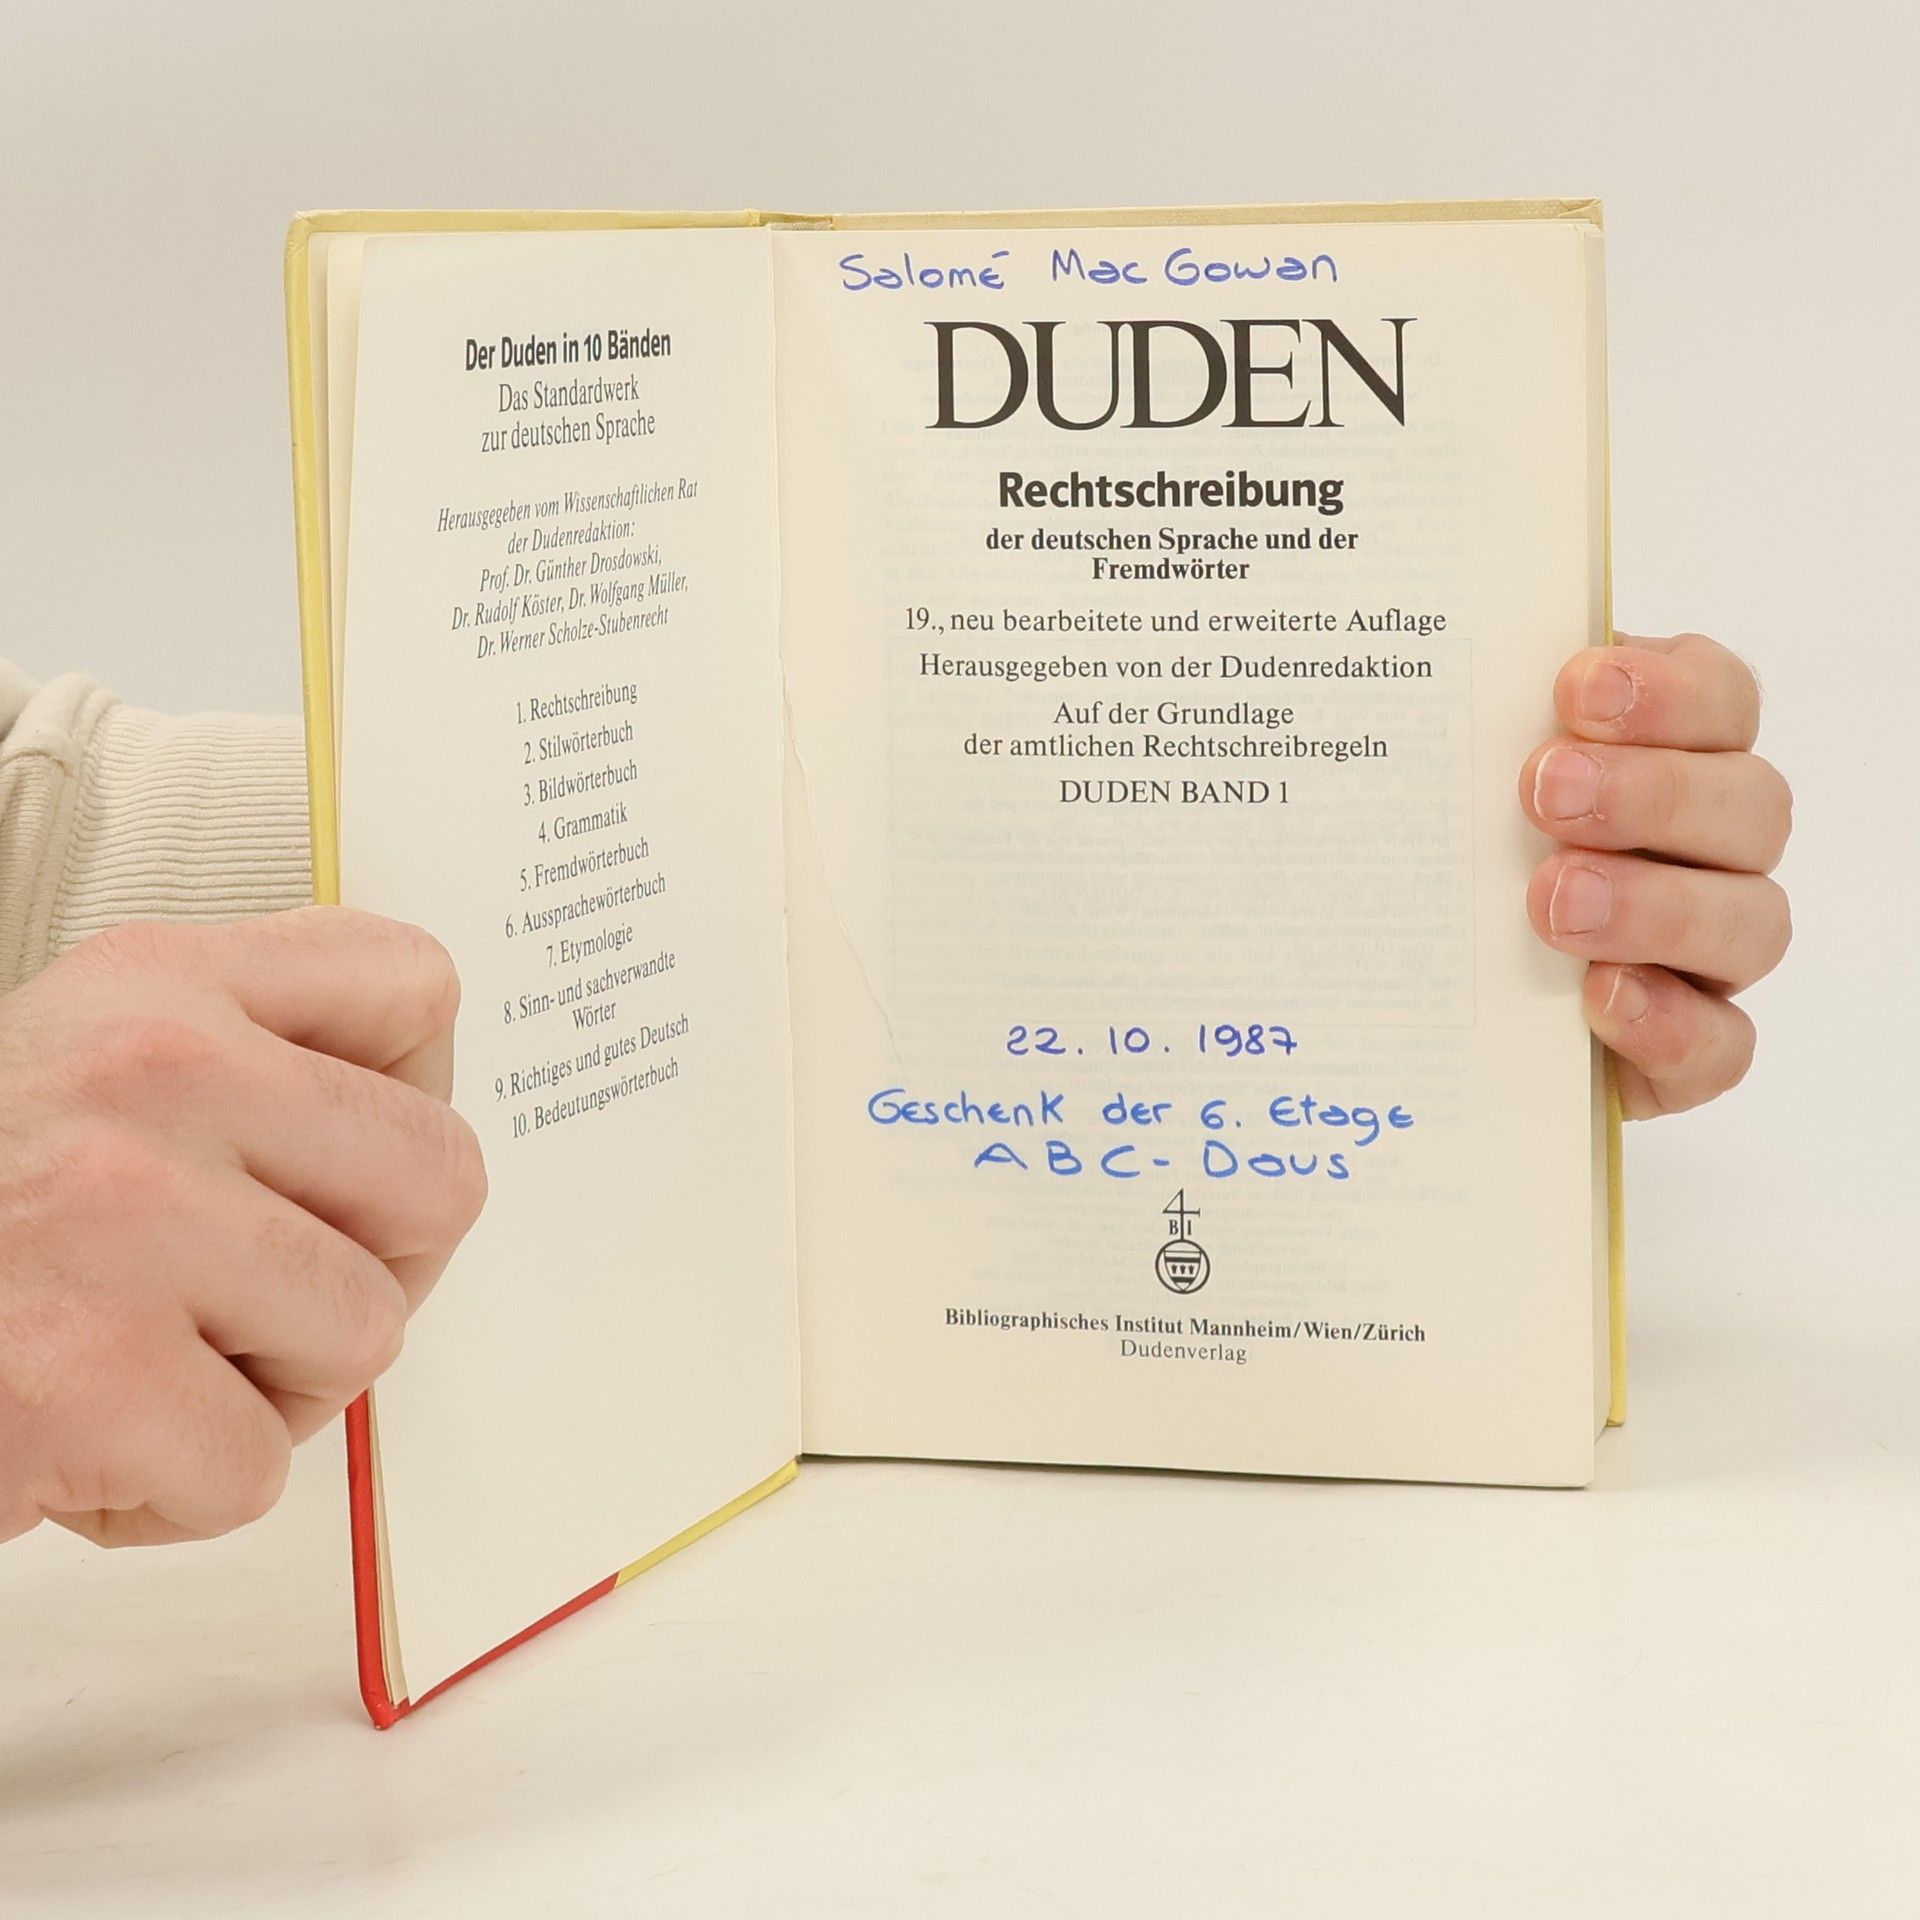 Der Duden in 10 Bänden
Das Standardwerk
zur deutschen Sprache
Herausgegeben vom Wissenschaftlichen Rat
der Dudenredaktion:
Prof. Dr. Günther Drosdowski,
Dr. Rudolf Köster, Dr. Wolfgang Müller,
Dr. Werner Scholze-Stubenrecht
1. Rechtschreibung
2. Stilwörterbuch
3. Bildwörterbuch
4. Grammatik
5. Fremdwörterbuch
6. Aussprachewörterbuch
7. Etymologie
8. Sinn- und sachverwandte
Wörter
9. Richtiges und gutes Deutsch
10. Bedeutungswörterbuch
Salomé Mac Gowan
DUDEN
Rechtschreibung
der deutschen Sprache und der
Fremdwörter
19., neu bearbeitete und erweiterte Auflage
Herausgegeben von der Dudenredaktion
Auf der Grundlage
der amtlichen Rechtschreibregeln
DUDEN BAND 1
22. 10. 1987
Geschenk der 6. Etage
ABC - Dous
B I
Bibliographisches Institut Mannheim/Wien/Zürich
Dudenverlag